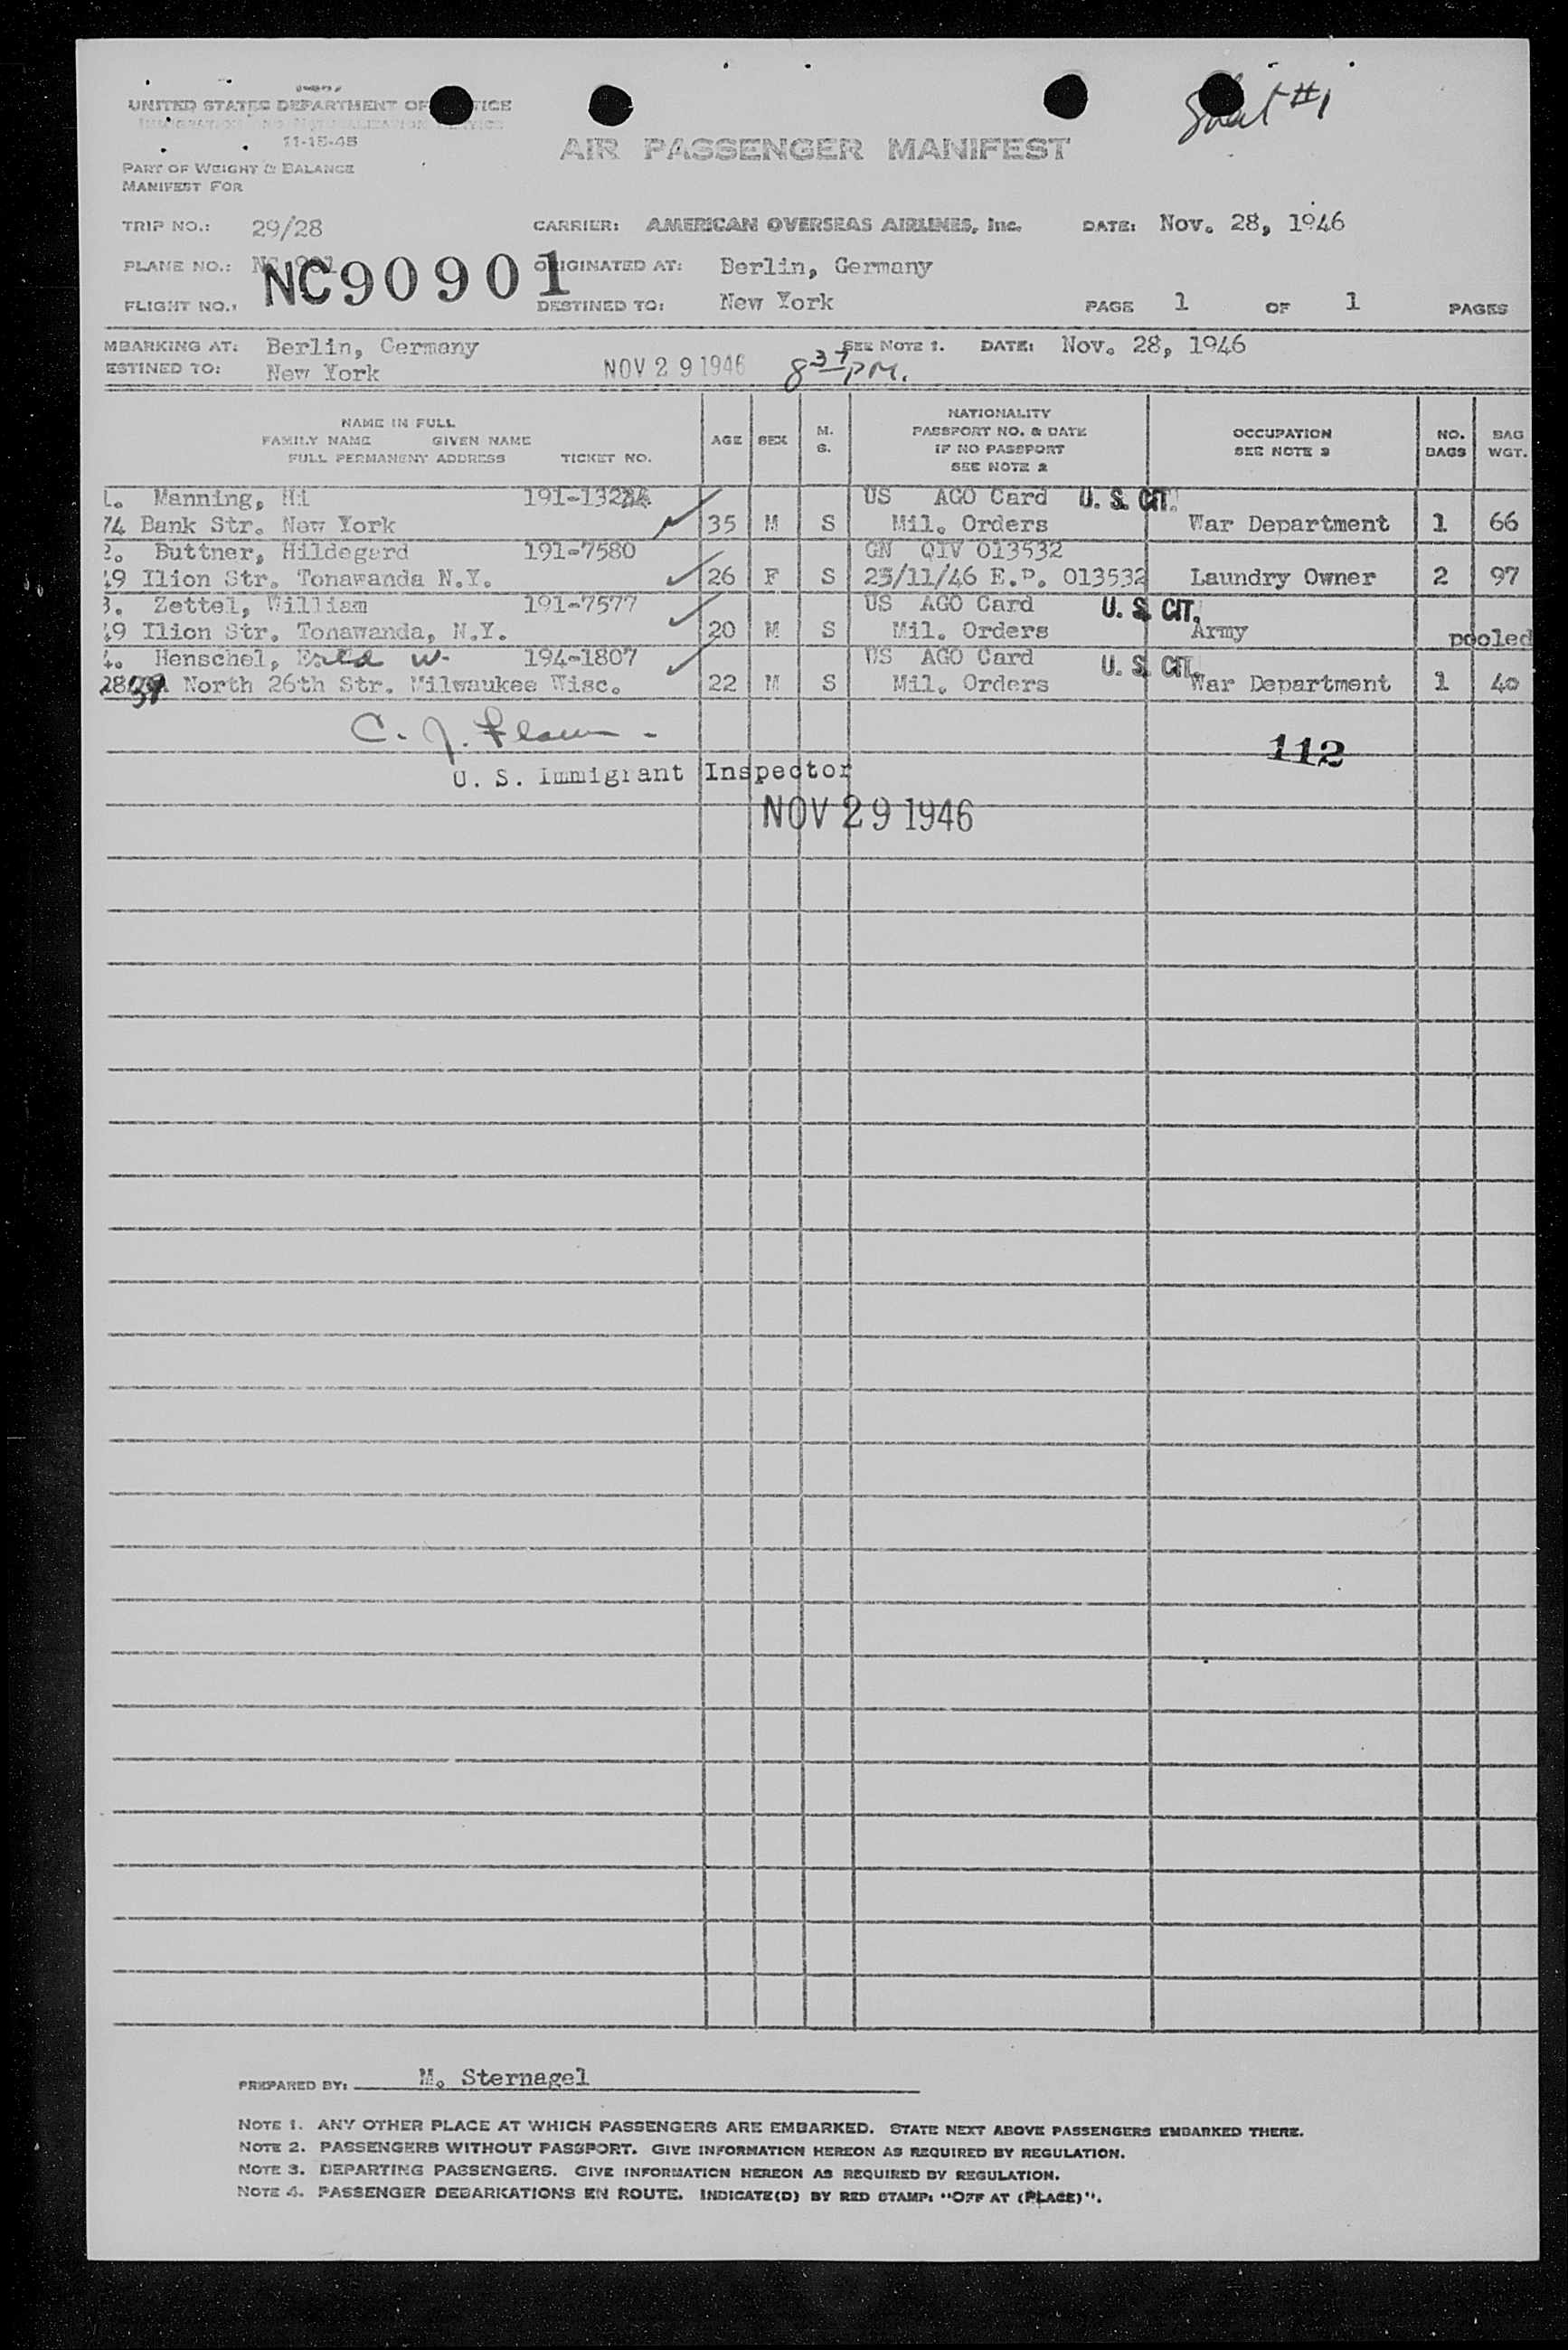 Sheet #1
UNITED STATES DEPARTMENT OF
IMMIGRATION AND NATURALIZATION SERVICE
11-15-45
AIR PASSENGER MANIFEST
PART OF WEIGHT & BALANCE
MANIFEST FOR
TRIP NO.: 29/28 CARRIER: AMERICAN OVERSEAS AIRLINES, Inc. DATE: Nov. 28, 1946
PLANE NO.: NC90901 ORIGINATED AT: Berlin, Germany
FLIGHT NO.: DESTINED TO: New York PAGE 1 OF 1 PAGES
MBARKING AT: Berlin, Germany SEE NOTE 1. DATE: Nov. 28, 1946
ESTINED TO: New York NOV 29 1946 8 37 PM.
NAME IN FULL
FAMILY NAME GIVEN NAME
FULL PERMANENT ADDRESS TICKET NO.
AGE SEX M. S.
NATIONALITY
PASSPORT NO. & DATE
IF NO PASSPORT
SEE NOTE 2
OCCUPATION
SEE NOTE 3
NO. BAGS
BAG WGT.
1. Manning, Hi US AGO Card U. S. CIT.
74 Bank Str. New York 35 M S Mil. Orders War Department 1 66
2. Buttner, Hildegard 191-7580 GN QIV 013532
49 Ilion Str. Tonawanda N.Y. 26 F S 23/11/46 E.P. 013532 Laundry Owner 2 97
3. Zettel, William 191-7577 US AGO Card U. S. CIT.
49 Ilion Str. Tonawanda, N.Y. 20 M S Mil. Orders Army pooled
4. Henschel, Fred W. 194-1807 US AGO Card U. S. CIT.
North 26th Str. Milwaukee Wisc. 22 M S Mil. Orders War Department 1 40
C. J.
112
U. S. Immigrant Inspector
NOV 29 1946
PREPARED BY: M. Sternagel
NOTE 1. ANY OTHER PLACE AT WHICH PASSENGERS ARE EMBARKED. STATE NEXT ABOVE PASSENGERS EMBARKED THERE.
NOTE 2. PASSENGERS WITHOUT PASSPORT. GIVE INFORMATION HEREON AS REQUIRED BY REGULATION.
NOTE 3. DEPARTING PASSENGERS. GIVE INFORMATION HEREON AS REQUIRED BY REGULATION.
NOTE 4. PASSENGER DEBARKATIONS EN ROUTE. INDICATE(D) BY RED STAMP: "OFF AT (PLACE)".